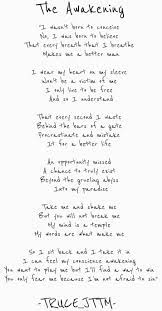 The Awakening
I wasn't born to conceive
No, I was born to believe
That every breath that I breathe
Makes me a better man
I wear my heart on my sleeve
Won't be a victim of me
I only live to be free
And so I understand
That every second I waste
Behind the bars of a gate
Procrastinate and mistake
It for a better life
An opportunity missed
A chance to truly exist
Beyond the groveling abyss
Into my paradise
Take me and shake me
But you will not break me
My mind is a temple
My words are what make me
So I sit back and I take it in
I can feel my conscience awakening
You want to play me but I'll find a way to win
You only fear me because I'm not afraid to sin"
-TRUCE_JTTM-